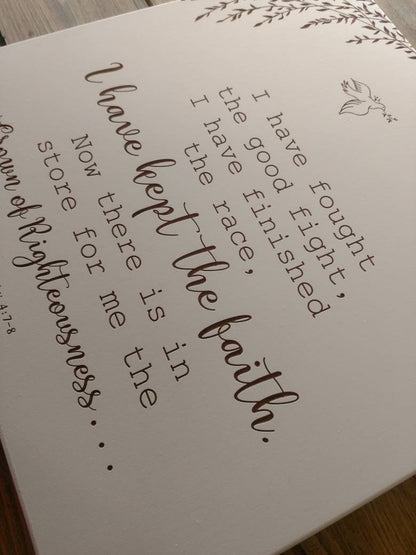 I have fought
the good fight,
I have finished
the race,
I have kept the faith.
Now there is in
store for me the
Crown of Righteousness...
4:7-8